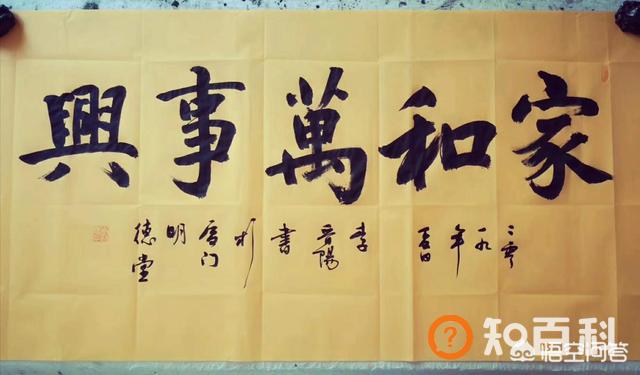 家和萬事興
二零一九年夏日李晋陽書於厦门明德堂
知百科
悟空问答